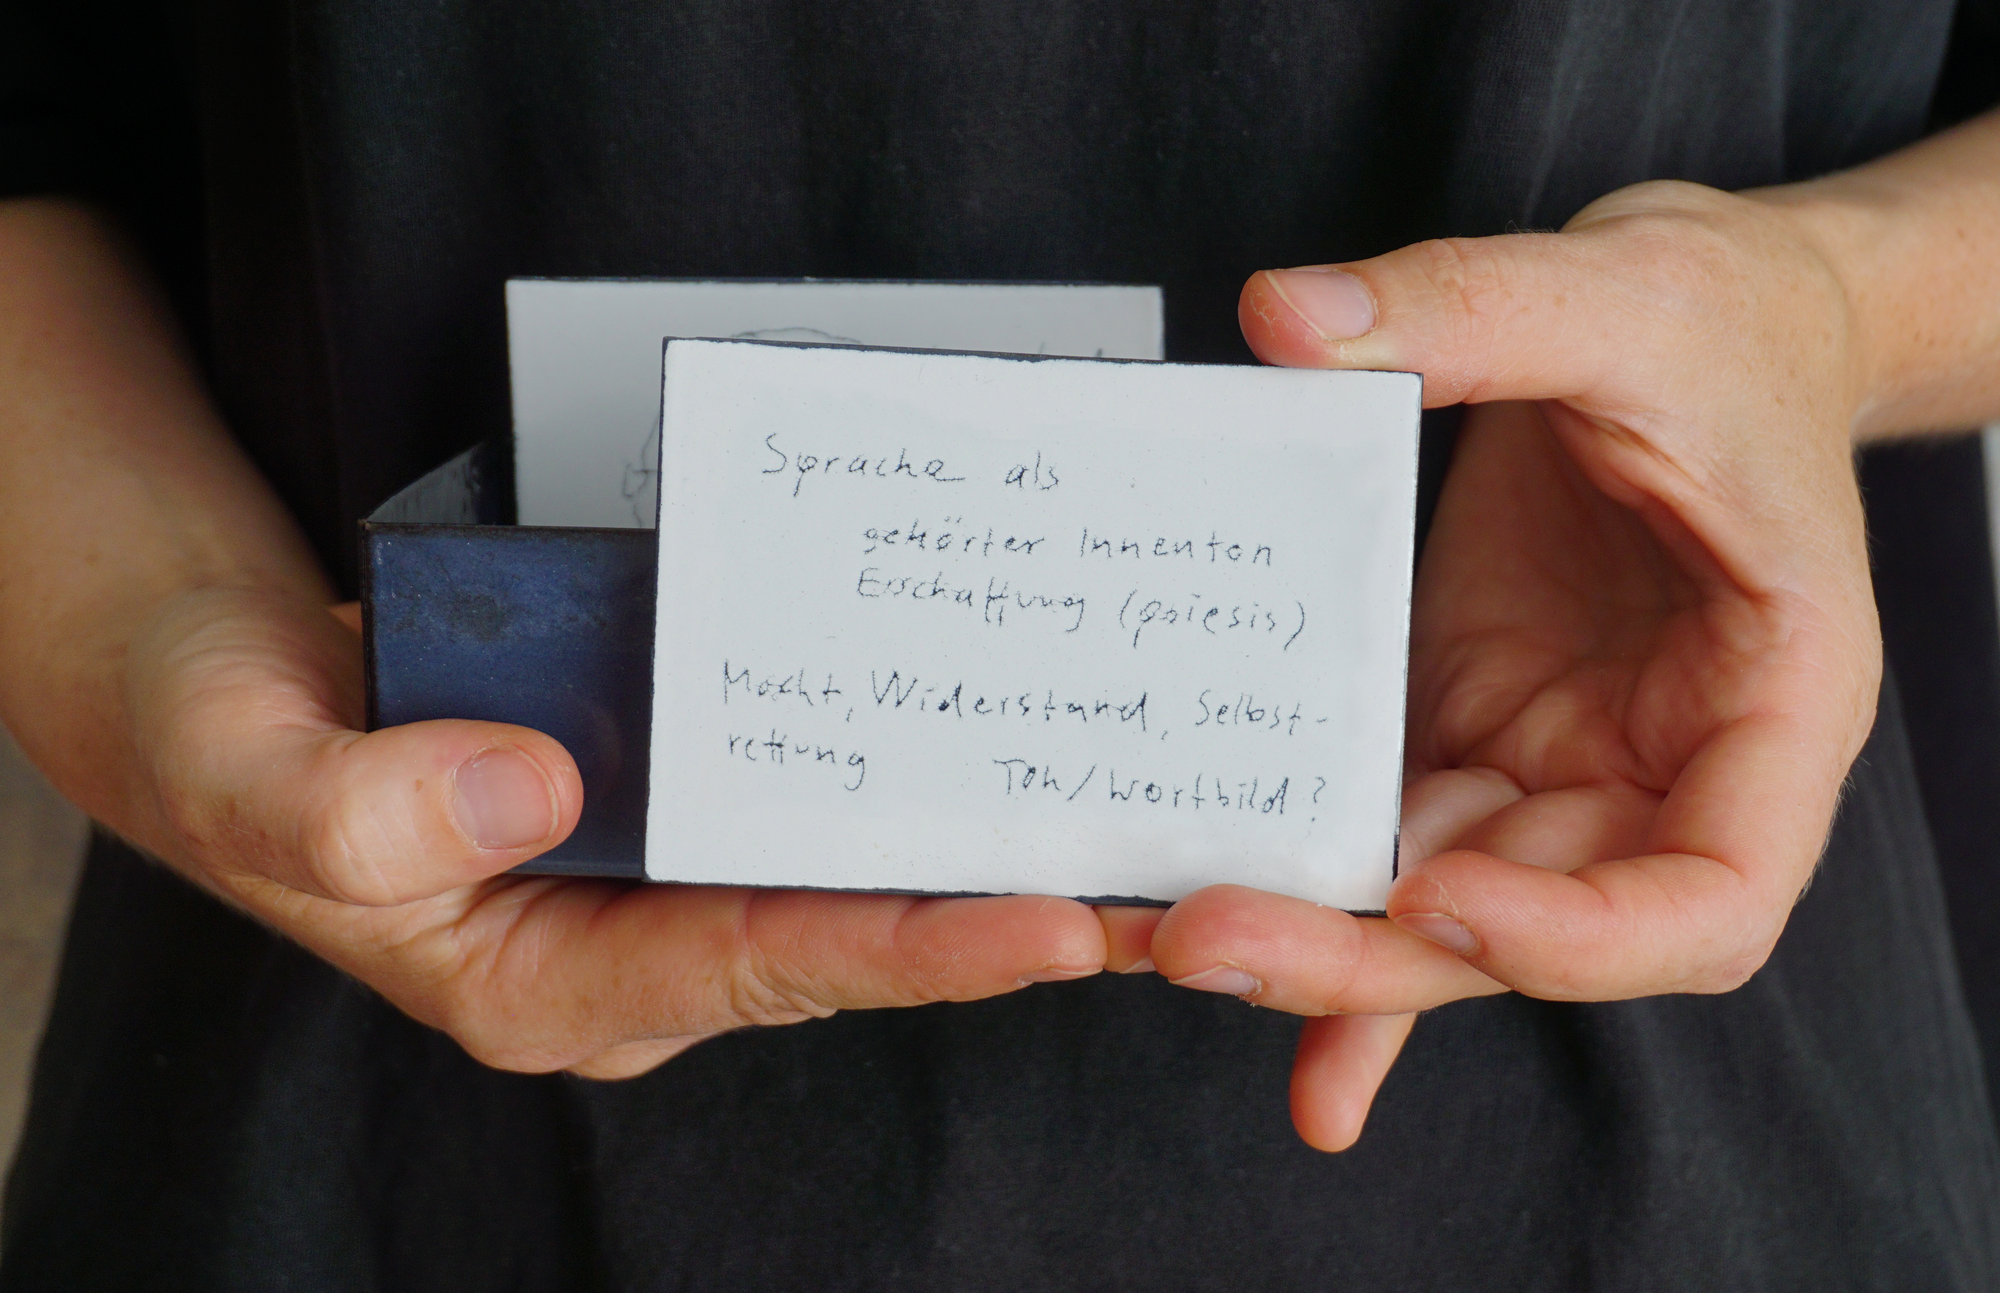 Sprache als
gehörter Innenton
Erschaffung (poiesis)
Macht, Widerstand, Selbst-
rettung Ton/Wortbild?